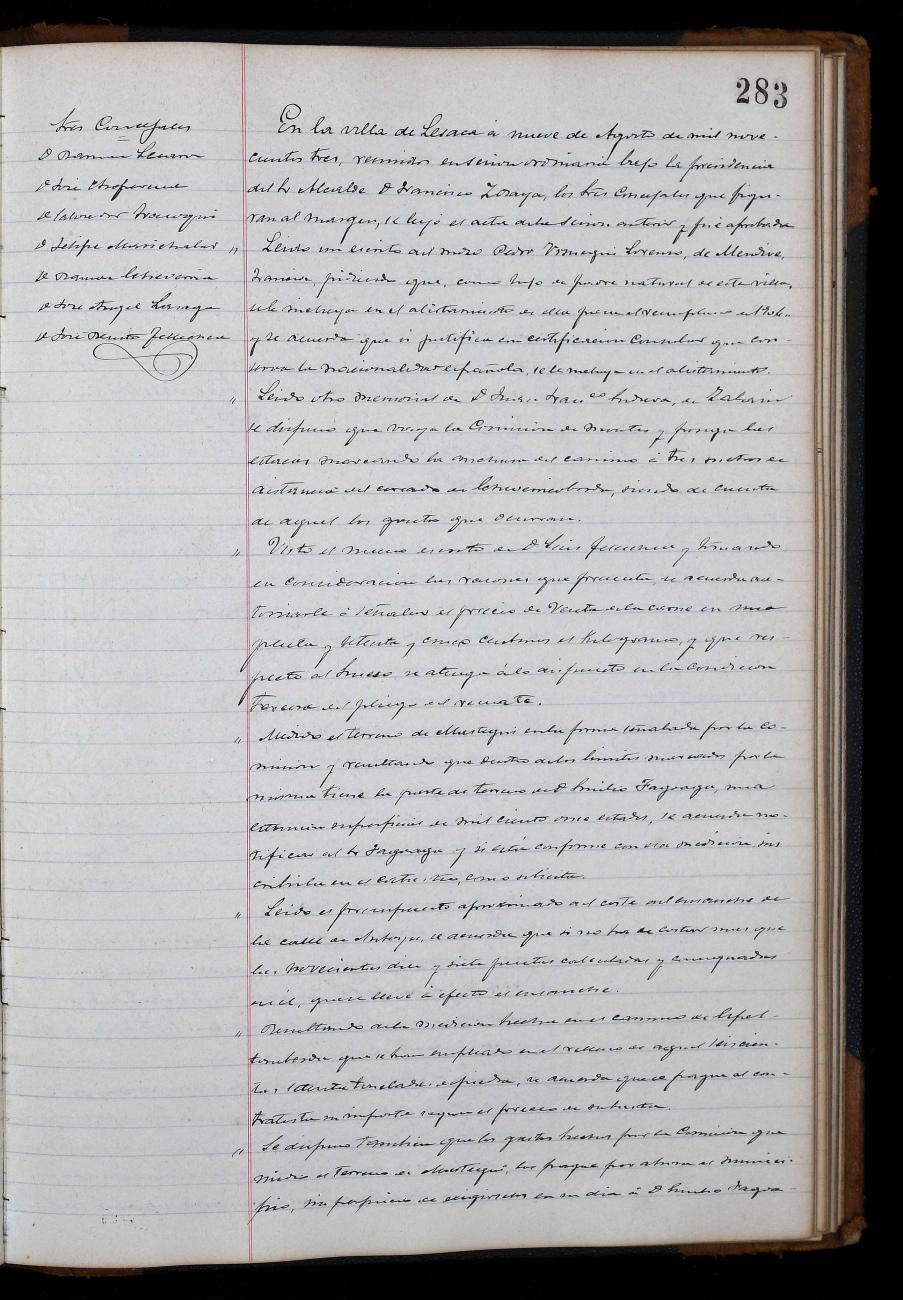 283
Sres Concejales
D Ramon
D José
D Salvador
D Felipe Marichalar
D Ramon Echeverria
D José Angel
D José Benito
En la villa de Lesaca á nueve de Agosto de mil nove-
cientos tres, reunidos en sesion ordinaria bajo la presidencia
del Sr Alcalde D Francisco Zoraya, los Sres Concejales que figu-
ran al margen, se leyó el acta de la sesion anterior y fué aprobada
" Leido un escrito del mozo Pedro Lorenzo, de Mendive,
Francia, pidiendo que, como hijo de padre natural de esta villa,
se le incluya en el alistamiento de ella para el reemplazo de
y se acuerda que si justifica con certificacion Consular que con-
serva la nacionalidad española, se le incluya en el alistamiento.
" Leido otro memorial de D Juan Franco de
se dispuso que vaya la Comision de montes y ponga las
estacas marcando la anchura del camino á tres metros de
distancia del cerrado de siendo de cuenta
de aquel los gastos que ocurran.
" Visto el nuevo escrito de D Luis y tomando
en consideracion las razones que presenta, se acuerda au-
torizarle á señalar el precio de Venta de la carne en una
peseta y setenta y cinco centimos el Kilogramo, y que res-
pecto al hueso se atenga á lo dispuesto en la Condicion
Tercera del pliego del remate.
" Medido el terreno de en la forma señalada por la co-
mision y resultando que dentro de los limites marcados por la
misma tiene la parte de terreno de D Emilio Fagoaga, una
estension superficial de mil ciento once estados, se acuerda no-
tificar al Sr Fagoaga y si está conforme con esa medicion sus
" Leido el presupuesto aproximado del coste del ensanche de
la calle de se acuerda que si no ha de costar mas que
las novecientas diez y siete pesetas calculadas y consignadas
en él, que se lleve á efecto el ensanche.
" Resultando de la medicion hecha en el camino de
que se han empleado en el relleno de aquel seiscien-
tas setenta toneladas de piedra, se acuerda que se pague al con-
tratista su importe segun el precio de subasta.
" Se dispuso tambien que los gastos hechos por la Comision que
midió el terreno de los pague por ahora el munici-
pio, sin perjuicio de exigirselos en su dia á D Emilio Fagoa-